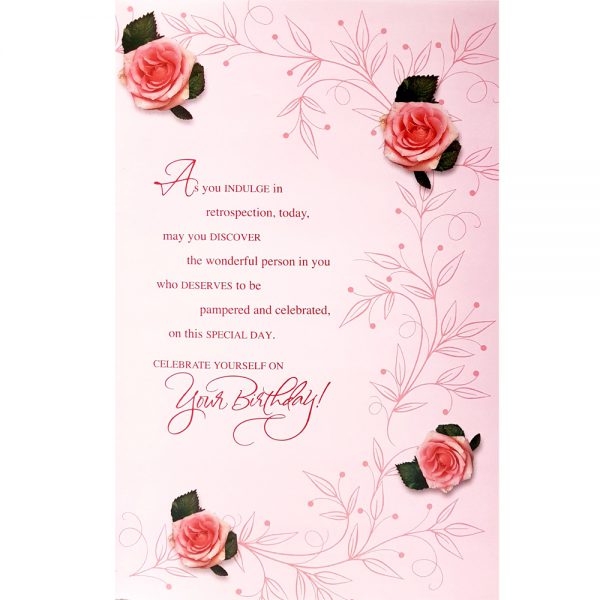 As you INDULGE in
retrospection, today,
may you DISCOVER
the wonderful person in you
who DESERVES to be
pampered and celebrated,
on this SPECIAL DAY.
CELEBRATE YOURSELF ON
Your Birthday!